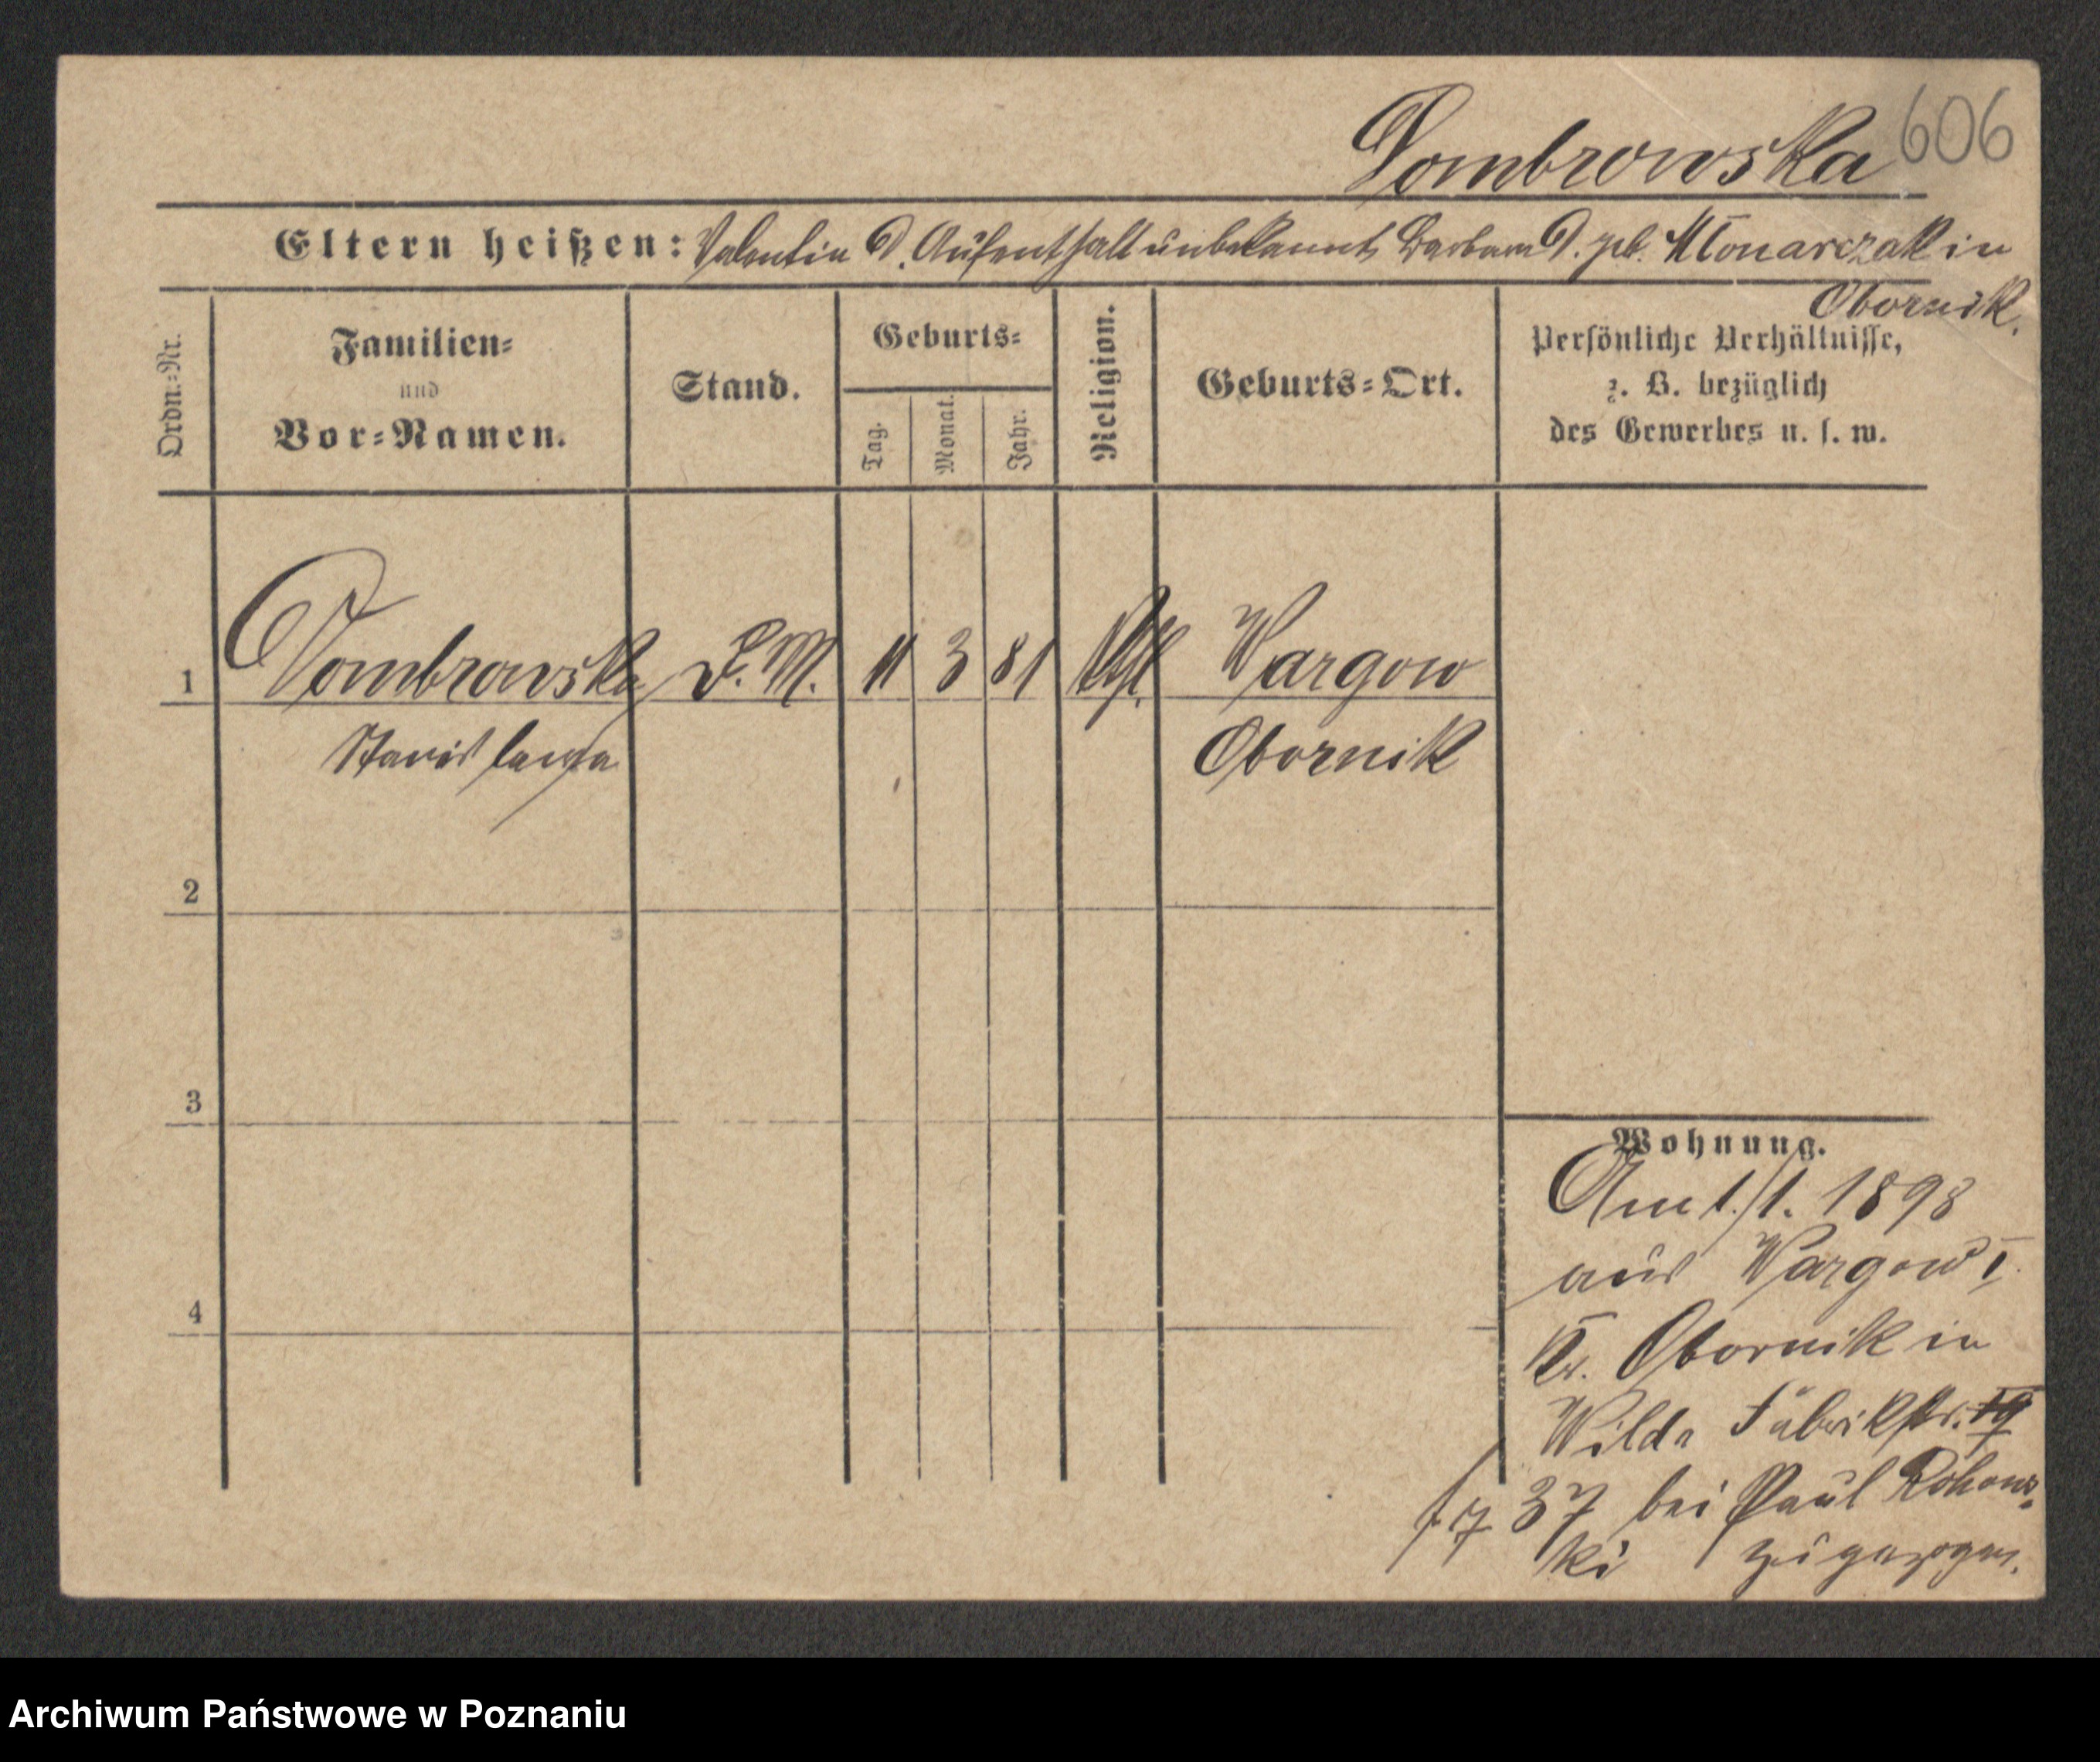 Dombrowska 606
Eltern heißen: Valentin D. Aufenthalt unbekannt, Barbara D. geb. Mlonarczak in
Obornik.
Ordn.=Nr.
Familien=
und
Vor=Namen.
Stand.
Geburts=
Tag.
Monat.
Jahr.
Religion.
Geburts=Ort.
Persönliche Verhältnisse,
z. B. bezüglich
des Gewerbes u. s. w.
1 Dombrowska D. M. 11 3 81 Kth. Wargow
Stanislawa Obornik
2
3
4
Wohnung.
Am 1./1. 1898
aus Wargowo I.
Kr. Obornik in
Wilda Fabrikstr. 19
37 bei Paul
ki zugezogen.
Archiwum Państwowe w Poznaniu